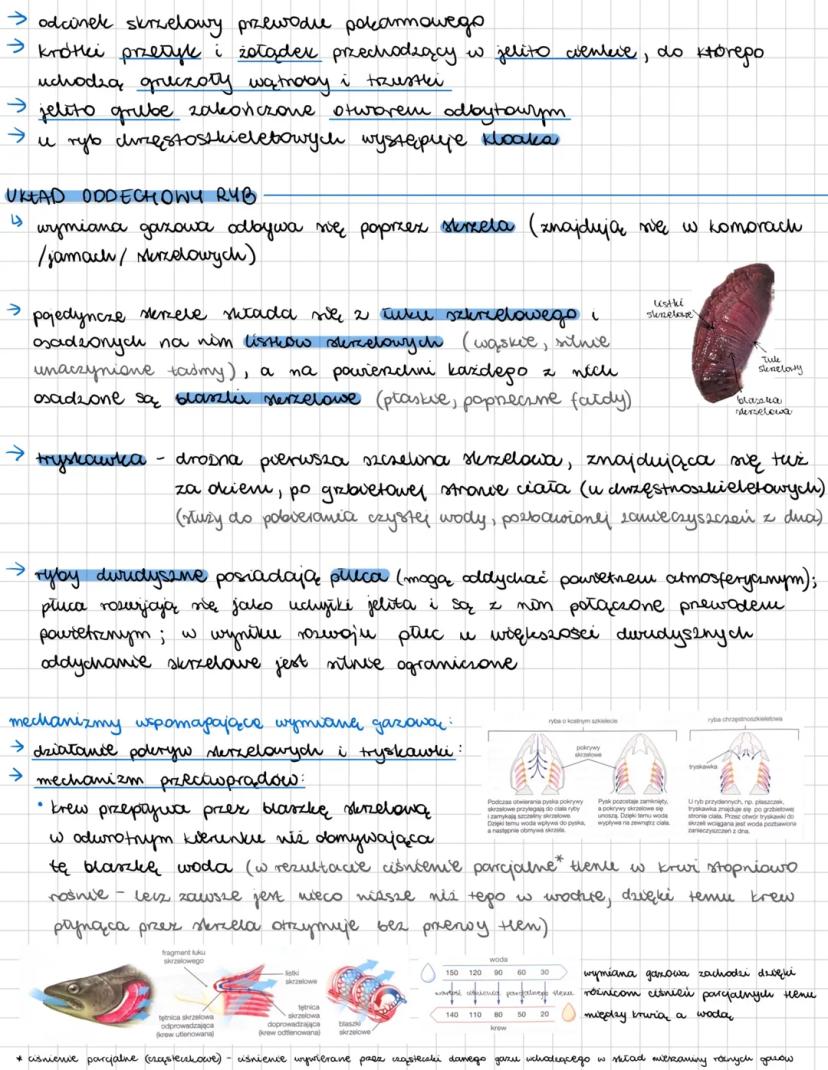 → odcinek skrzelowy przewodu pokarmowego
→ krótki przełyk i żołądek przechodzący w jelito cienkie, do którego
uchodzą gruczoły wątroby i trzustki
→ jelito grube zakończone otworem odbytowym
→ u ryb chrzęstoszkieletowych występuje kloaka
UKŁAD ODDECHOWY RYB
↳ wymiana gazowa odbywa się poprzez skrzela (znajdują się w komorach
/jamach/ skrzelowych)
→ pojedyncze skrzele składa się z łuku szkrzelowego i
osadzonych na nim listków skrzelowych (wąskie, silnie
unaczynione taśmy), a na powierzchni każdego z nich
osadzone są blaszki skrzelowe (płaskie, poprzeczne fałdy)
listki
skrzelowe
łuk
skrzelowy
blaszka
skrzelowa
→ tryskawka - drobna pierwsza szczelina skrzelowa, znajdująca się tuż
za okiem, po grzbietowej stronie ciała (u chrzęstnoszkieletowych)
(służy do pobierania czystej wody, pozbawionej zanieczyszczeń z dna)
→ ryby dwudyszne posiadają płuca (mogą oddychać powietrzem atmosferycznym);
płuca rozwijają się jako uchyłki jelita i są z nim połączone przewodem
powietrznym; w wyniku rozwoju płuc u większości dwudysznych
oddychanie skrzelowe jest silnie ograniczone
mechanizmy wspomagające wymianę gazową:
→ działanie pokryw skrzelowych i tryskawki:
→ mechanizm przeciwprądów:
• krew przepływa przez blaszkę skrzelową
w odwrotnym kierunku niż obmywająca
tę blaszkę woda (w rezultacie ciśnienie parcjalne* tlenu w krwi stopniowo
rośnie - lecz zawsze jest nieco niższe niż tego w wodzie, dzięki temu krew
płynąca przez skrzela otrzymuje bez przerwy tlen)
ryba o kostnym szkielecie
ryba chrzęstnoszkieletowa
pokrywy
skrzelowe
tryskawka
Podczas otwierania pyska pokrywy
skrzelowe przylegają do ciała ryby
i zamykają szczeliny skrzelowe.
Dzięki temu woda wpływa do pyska,
a następnie obmywa skrzela.
Pysk pozostaje zamknięty,
a pokrywy skrzelowe się
unoszą. Dzięki temu woda
wypływa na zewnątrz ciała.
U ryb przydennych, np. płaszczek,
tryskawka znajduje się po grzbietowej
stronie ciała. Przez otwór tryskawki do
skrzeli wciągana jest woda pozbawiona
zanieczyszczeń z dna.
fragment łuku
skrzelowego
listki
skrzelowe
tętnica skrzelowa
odprowadzająca
(krew utlenowana)
tętnica
skrzelowa
doprowadzająca
(krew odtlenowana)
blaszki
skrzelowe
woda
150 120 90 60 30
wartość ciśnienia parcjalnego tlenu
140 110 80 50 20
krew
wymiana gazowa zachodzi dzięki
różnicom ciśnień parcjalnych tlenu
między krwią a wodą
* ciśnienie parcjalne (cząsteczkowe) - ciśnienie wywierane przez cząsteczki danego gazu wchodzącego w skład mieszaniny różnych gazów